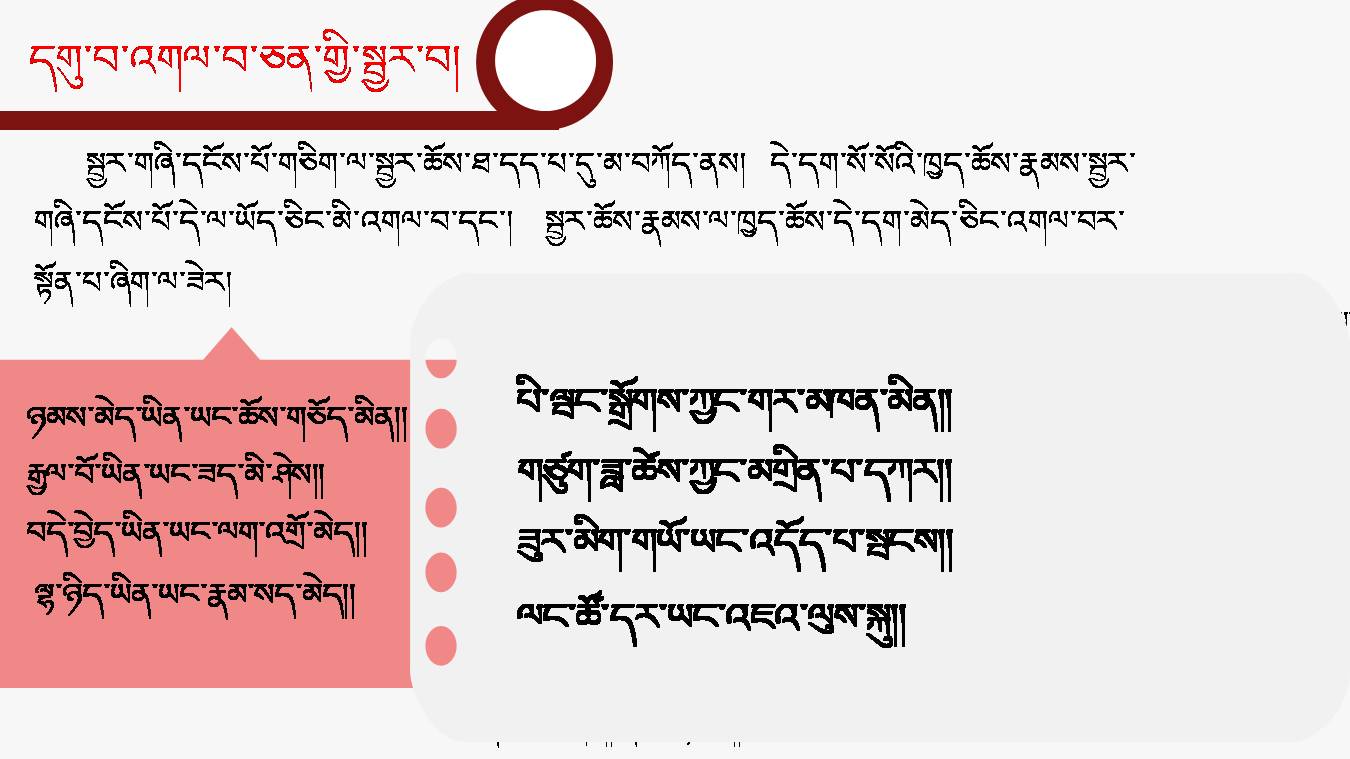 དགུ་བ་འགལ་བ་ཅན་གྱི་སྦྱར་བ།
སྦྱར་གཞི་དངོས་པོ་གཅིག་ལ་སྦྱར་ཆོས་ཐ་དད་པ་དུ་མ་བཀོད་ནས། དེ་དག་སོ་སོའི་ཁྱད་ཆོས་རྣམས་སྦྱར་
གཞི་དངོས་པོ་དེ་ལ་ཡོད་ཅིང་མི་འགལ་བ་དང་། སྦྱར་ཆོས་རྣམས་ལ་ཁྱད་ཆོས་དེ་དག་མེད་ཅིང་འགལ་བར་
སྟོན་པ་ཞིག་ལ་ཟེར།
ཉམས་མེད་ཡིན་ཡང་ཆོས་གཅོད་མིན།།
རྒྱལ་བོ་ཡིན་ཡང་ཟད་མི་ཤེས།།
བདེ་བྱེད་ཡིན་ཡང་ལག་འགྲོ་མེད།།
ལྷ་ཉིད་ཡིན་ཡང་རྣམ་སད་མེད།།
པི་ལྦང་སྒྲོགས་ཀྱང་གར་མཁན་མིན།།
གཙུག་ཟླ་ཚེས་ཀྱང་མགྲིན་པ་དཀར།།
ཟུར་མིག་གཡོ་ཡང་འདོད་པ་སྤངས།།
ལང་ཚོ་དར་ཡང་འཇའ་ལུས་སྐུ།།